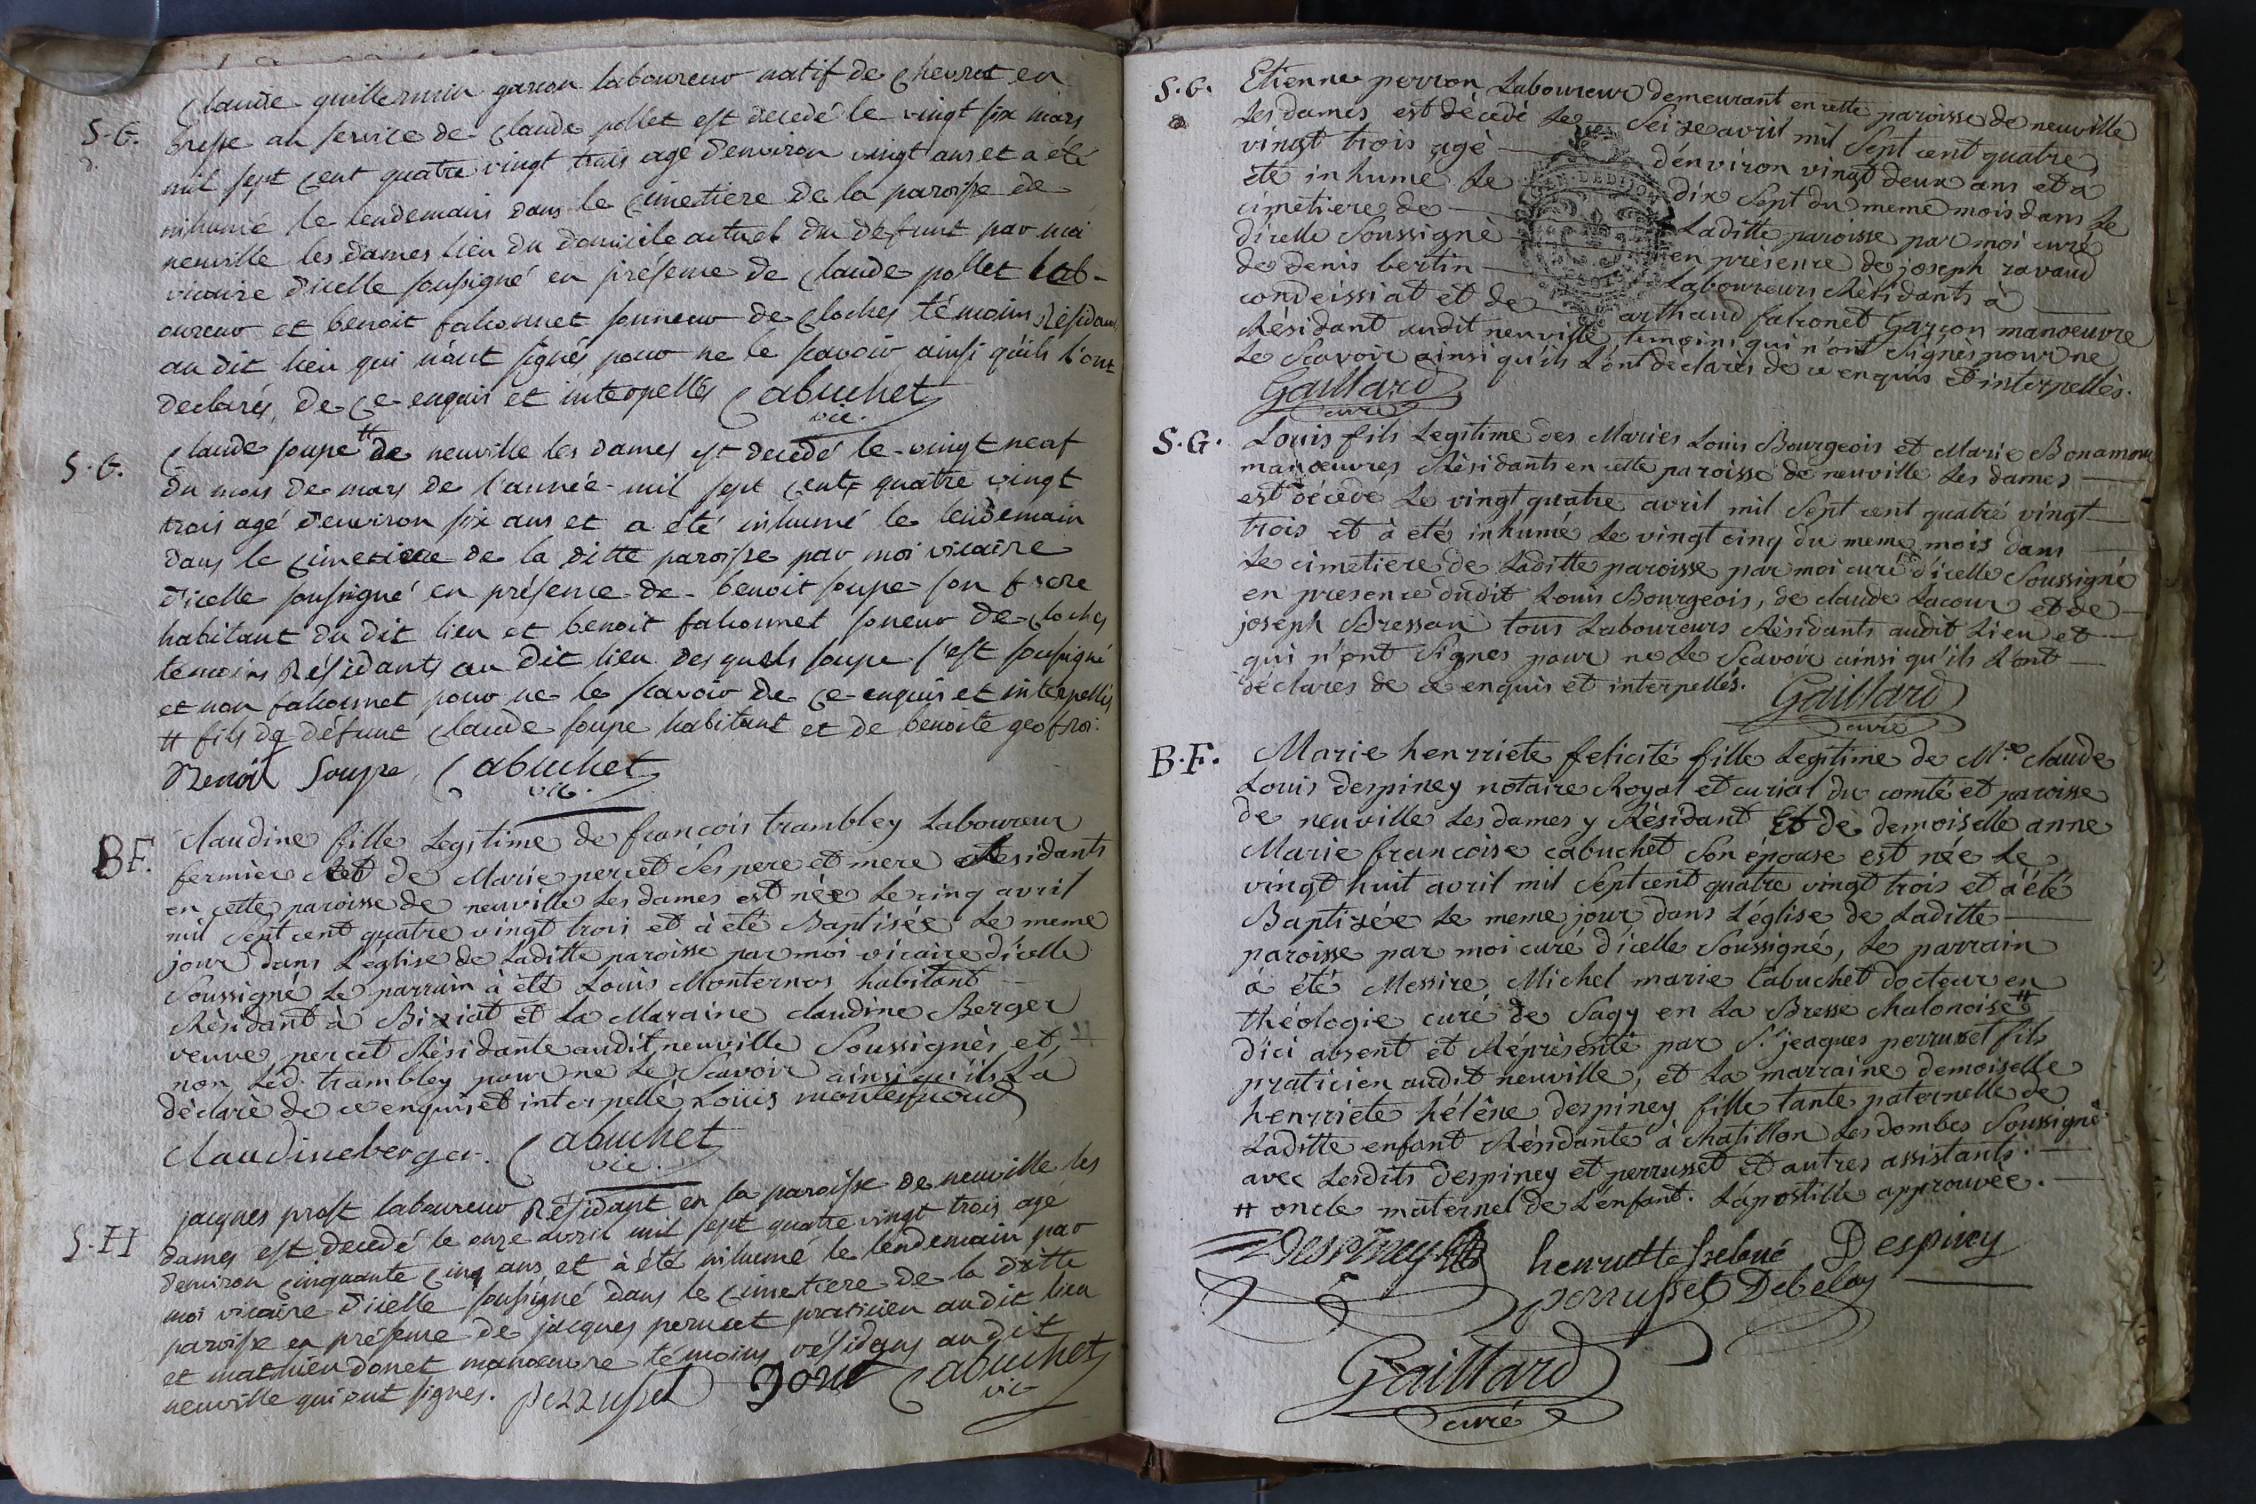 S.G.
Claude guillermin garcon laboureur natif de chevrot en
bresse au service de claude pollet est decedé le vingt six mars
mil sept cent quatre vingt trois agé d'environ vingt ans et a été
inhumé le lendemain dans le cimetiere de la paroisse de
neuville les dames lieu du domicile actuel du defunt par moi
vicaire d'icelle soussigné en présence de claude pollet lab-
oureur et benoit falconnet sonneur de cloches témoins Résidans
au dit lieu qui n'ont signés pour ne le scavoir ainsi qu'ils l'ont
declarés de ce enquis et interpellés Cabuchet
vic.
S.G.
Claude soupe # de neuville les dames est decedé le vingt neuf
du mois de mars de l'année mil sept cent quatre vingt
trois agé d'environ six ans et a été inhumé le lendemain
dans le cimetiere de la ditte paroisse par moi vicaire
d'icelle soussigné en présence de benoit soupe son frere
habitant du dit lieu et benoit falconnet soneur de cloches
temoins Résidants au dit lieu desquels soupe s'est soussigné
et non falconnet pour ne le scavoir de ce enquis et interpellés
# fils de défunt claude soupe habitant et de benoite geofroi.
Benoit Soupe Cabuchet
vic.
B F.
Claudine fille Legitime de françois trambley Laboureur
fermier et de Marie percet Ses pere et mere Residants
en cette paroisse de neuville Les dames est née Le cinq avril
mil Sept cent quatre vingt trois et à été Baptisée Le meme
jour dans L'église de Laditte paroisse par moi vicaire d'icelle
Soussigné Le parrain à été Louis Monternos habitant
Résidant à Biziat et La Maraine claudine Berger
veuve percet Résidante audit neuville Soussignés et
non Led. trambley pour ne Le Scavoir ainsi qu'il La
déclaré de ce enquis et interpellé Louis
Claudine berger. Cabuchet
vic.
S.H
jacques prost laboureur Résidant en la paroisse de neuville les
dames est decedé le onze avril mil sept quatre vingt trois agé
d'environ cinquante cinq ans et à été inhumé le lendemain par
moi vicaire d'icelle soussigné dans le cimetiere de la ditte
paroisse en présence de jacques perruset praticien audit lieu
et mathieu donet manoeuvre témoins résidans audit
neuville qui ont signés. perrusset Donet Cabuchet
vic
S.G.
Etienne perron Laboureur demeurant en cette paroisse de neuville
Les dames est décédé Le Seize avril mil Sept cent quatre
vingt trois agé d'environ vingt deux ans et a
été inhumé Le dix Sept du meme mois dans Le
cimetiere de Laditte paroisse par moi curé
d'icelle Soussigné en présence de joseph ravaud
de denis bertin Laboureurs Résidants à
condeissiat et de arthaud falconet Garçon manoeuvre
Résidant audit neuville, temoins qui n'ont Signés pour ne
Le Scavoir ainsi qu'ils L'ont déclarés de ce enquis et interpellés.
Gaillard
curé
S.G.
Louis fils Legitime des Mariés Louis Bourgeois et Marie Bonamour
manoeuvres Résidants en cette paroisse de neuville Les dames
est décédé Le vingt quatre avril mil Sept cent quatre vingt
trois et à été inhumé Le vingt cinq du meme mois dans
Le cimetiere de Laditte paroisse par moi curé d'icelle Soussigné
en presence dudit Louis Bourgeois, de claude Lacour et de
joseph Bressan tous Laboureurs Résidants audit Lieu et
qui n'ont Signes pour ne Le Scavoir ainsi qu'ils L'ont
déclarés de ce enquis et interpellés. Gaillard
curé
B.F.
Marie henrriete felicité fille Legitime de M.e claude
Louis despiney notaire Royal et curial du comté et paroisse
de neuville Les dames y Résidant Et de demoiselle anne
Marie francoise cabuchet Son épouse est née Le
vingt huit avril mil Sept cent quatre vingt trois et à été
Baptisée Le meme jour dans L'église de Laditte
paroisse par moi curé d'icelle Soussigné, Le parrain
à été Messire Michel marie Cabuchet docteur en
théologie curé de Sagy en La Bresse chalonoise #
d'ici absent et Réprésenté par S.r jeacques perruset fils
praticien audit neuville, et La marraine demoiselle
henrriete hélêne despiney fille tante paternelle de
Laditte enfant Résidante à chatillon Les dombes Soussigné
avec Lesdits despiney et perrusset et autres assistants.
# oncle maternel de L'enfant. L'apostille approuvée.
Despiney henriette helene Despiney
perrusset Debelay
Gaillard
curé